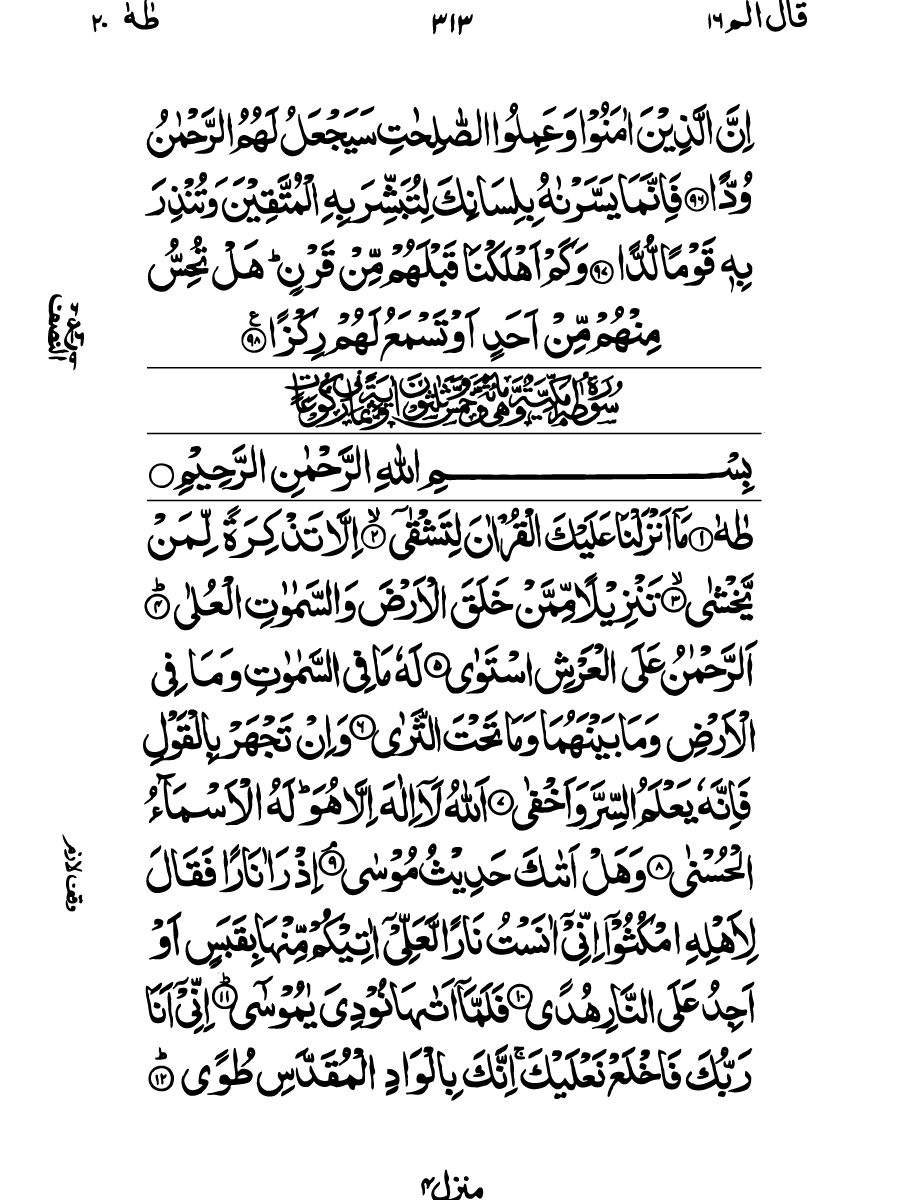 قال الم ١٦
٣١٣
طٰهٰ ٢٠
اِنَّ الَّذِيْنَ اٰمَنُوْا وَعَمِلُوا الصّٰلِحٰتِ سَيَجْعَلُ لَهُمُ الرَّحْمٰنُ
وُدًّا ﴿٩٦﴾ فَاِنَّمَا يَسَّرْنٰهُ بِلِسَانِكَ لِتُبَشِّرَ بِهِ الْمُتَّقِيْنَ وَتُنْذِرَ
بِهٖ قَوْمًا لُّدًّا ﴿٩٧﴾ وَكَمْ اَهْلَكْنَا قَبْلَهُمْ مِّنْ قَرْنٍ ؕ هَلْ تُحِسُّ
مِنْهُمْ مِّنْ اَحَدٍ اَوْ تَسْمَعُ لَهُمْ رِكْزًا ﴿٩٨﴾ ع
النصف
سُوْرَةُ طٰهٰ مَكِّيَّةٌ وَّهِيَ مِائَةٌ وَّخَمْسٌ وَّثَلٰثُوْنَ اٰيَةً وَّثَمَانِيْ رُكُوْعَاتٍ
بِسْمِ اللّٰهِ الرَّحْمٰنِ الرَّحِيْمِ
طٰهٰ ﴿١﴾ مَاۤ اَنْزَلْنَا عَلَيْكَ الْقُرْاٰنَ لِتَشْقٰۤى ﴿٢﴾ۙ اِلَّا تَذْكِرَةً لِّمَنْ
يَّخْشٰى ﴿٣﴾ۙ تَنْزِيْلًا مِّمَّنْ خَلَقَ الْاَرْضَ وَالسَّمٰوٰتِ الْعُلٰى ﴿٤﴾ؕ
اَلرَّحْمٰنُ عَلَى الْعَرْشِ اسْتَوٰى ﴿٥﴾ لَهٗ مَا فِى السَّمٰوٰتِ وَمَا فِى
الْاَرْضِ وَمَا بَيْنَهُمَا وَمَا تَحْتَ الثَّرٰى ﴿٦﴾ وَاِنْ تَجْهَرْ بِالْقَوْلِ
فَاِنَّهٗ يَعْلَمُ السِّرَّ وَاَخْفٰى ﴿٧﴾ اَللّٰهُ لَاۤ اِلٰهَ اِلَّا هُوَ ؕ لَهُ الْاَسْمَآءُ
الْحُسْنٰى ﴿٨﴾ وَهَلْ اَتٰىكَ حَدِيْثُ مُوْسٰى ﴿٩﴾ۘ اِذْ رَاٰ نَارًا فَقَالَ
وقف لازم
لِاَهْلِهِ امْكُثُوْۤا اِنِّيْۤ اٰنَسْتُ نَارًا لَّعَلِّيْۤ اٰتِيْكُمْ مِّنْهَا بِقَبَسٍ اَوْ
اَجِدُ عَلَى النَّارِ هُدًى ﴿١٠﴾ فَلَمَّاۤ اَتٰىهَا نُوْدِىَ يٰمُوْسٰى ﴿١١﴾ؕ اِنِّيْۤ اَنَا
رَبُّكَ فَاخْلَعْ نَعْلَيْكَ ۚ اِنَّكَ بِالْوَادِ الْمُقَدَّسِ طُوًى ﴿١٢﴾ؕ
منزل ٤